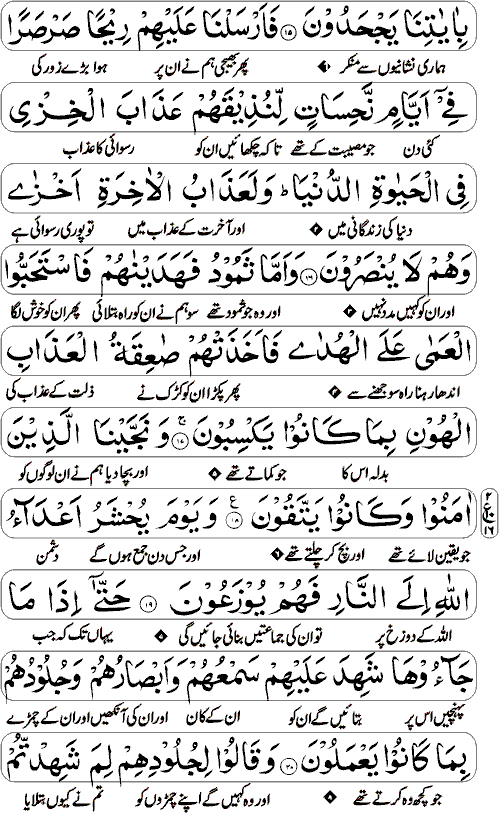 بِاٰيٰتِنَا يَجْحَدُوْنَ ۝۱۵ فَاَرْسَلْنَا عَلَيْهِمْ رِيْحًا صَرْصَرًا
ہماری نشانیوں سے منکر پھر بھیجی ہم نے ان پر ہوا بڑے زور کی
فِيْٓ اَيَّامٍ نَّحِسَاتٍ لِّنُذِيْقَهُمْ عَذَابَ الْخِزْيِ
کئی دن جو مصیبت کے تھے تاکہ چکھائیں ان کو رسوائی کا عذاب
فِي الْحَيٰوةِ الدُّنْيَا ؕ وَلَعَذَابُ الْاٰخِرَةِ اَخْزٰى
دنیا کی زندگانی میں اور آخرت کے عذاب میں تو پوری رسوائی ہے
وَهُمْ لَا يُنْصَرُوْنَ ۝۱۶ وَاَمَّا ثَمُوْدُ فَهَدَيْنٰهُمْ فَاسْتَحَبُّوا
اور ان کو کہیں مدد نہیں اور وہ جو ثمود تھے سو ہم نے ان کو راہ بتلائی پھر ان کو خوش لگا
الْعَمٰى عَلَى الْهُدٰى فَاَخَذَتْهُمْ صٰعِقَةُ الْعَذَابِ
اندھا رہنا راہ سوجھنے سے پھر پکڑا ان کو کڑک نے ذلت کے عذاب کی
الْهُوْنِ بِمَا كَانُوْا يَكْسِبُوْنَ ۝۱۷ ۚ وَنَجَّيْنَا الَّذِيْنَ
بدلہ اس کا جو کماتے تھے اور بچا دیا ہم نے ان لوگوں کو
اٰمَنُوْا وَكَانُوْا يَتَّقُوْنَ ۝۱۸ ع وَيَوْمَ يُحْشَرُ اَعْدَآءُ
جو یقین لائے تھے اور بچ کر چلتے تھے اور جس دن جمع ہوں گے دشمن
اللّٰهِ اِلَى النَّارِ فَهُمْ يُوْزَعُوْنَ ۝۱۹ حَتّٰىٓ اِذَا مَا
اللہ کے دوزخ پر تو ان کی جماعتیں بنائی جائیں گی یہاں تک کہ جب
جَآءُوْهَا شَهِدَ عَلَيْهِمْ سَمْعُهُمْ وَاَبْصَارُهُمْ وَجُلُوْدُهُمْ
پہنچیں اس پر بتائیں گے ان کو ان کے کان اور ان کی آنکھیں اور ان کے چمڑے
بِمَا كَانُوْا يَعْمَلُوْنَ ۝۲۰ وَقَالُوْا لِجُلُوْدِهِمْ لِمَ شَهِدْتُّمْ
جو کچھ وہ کرتے تھے اور وہ کہیں گے اپنے چمڑوں کو تم نے کیوں بتلایا